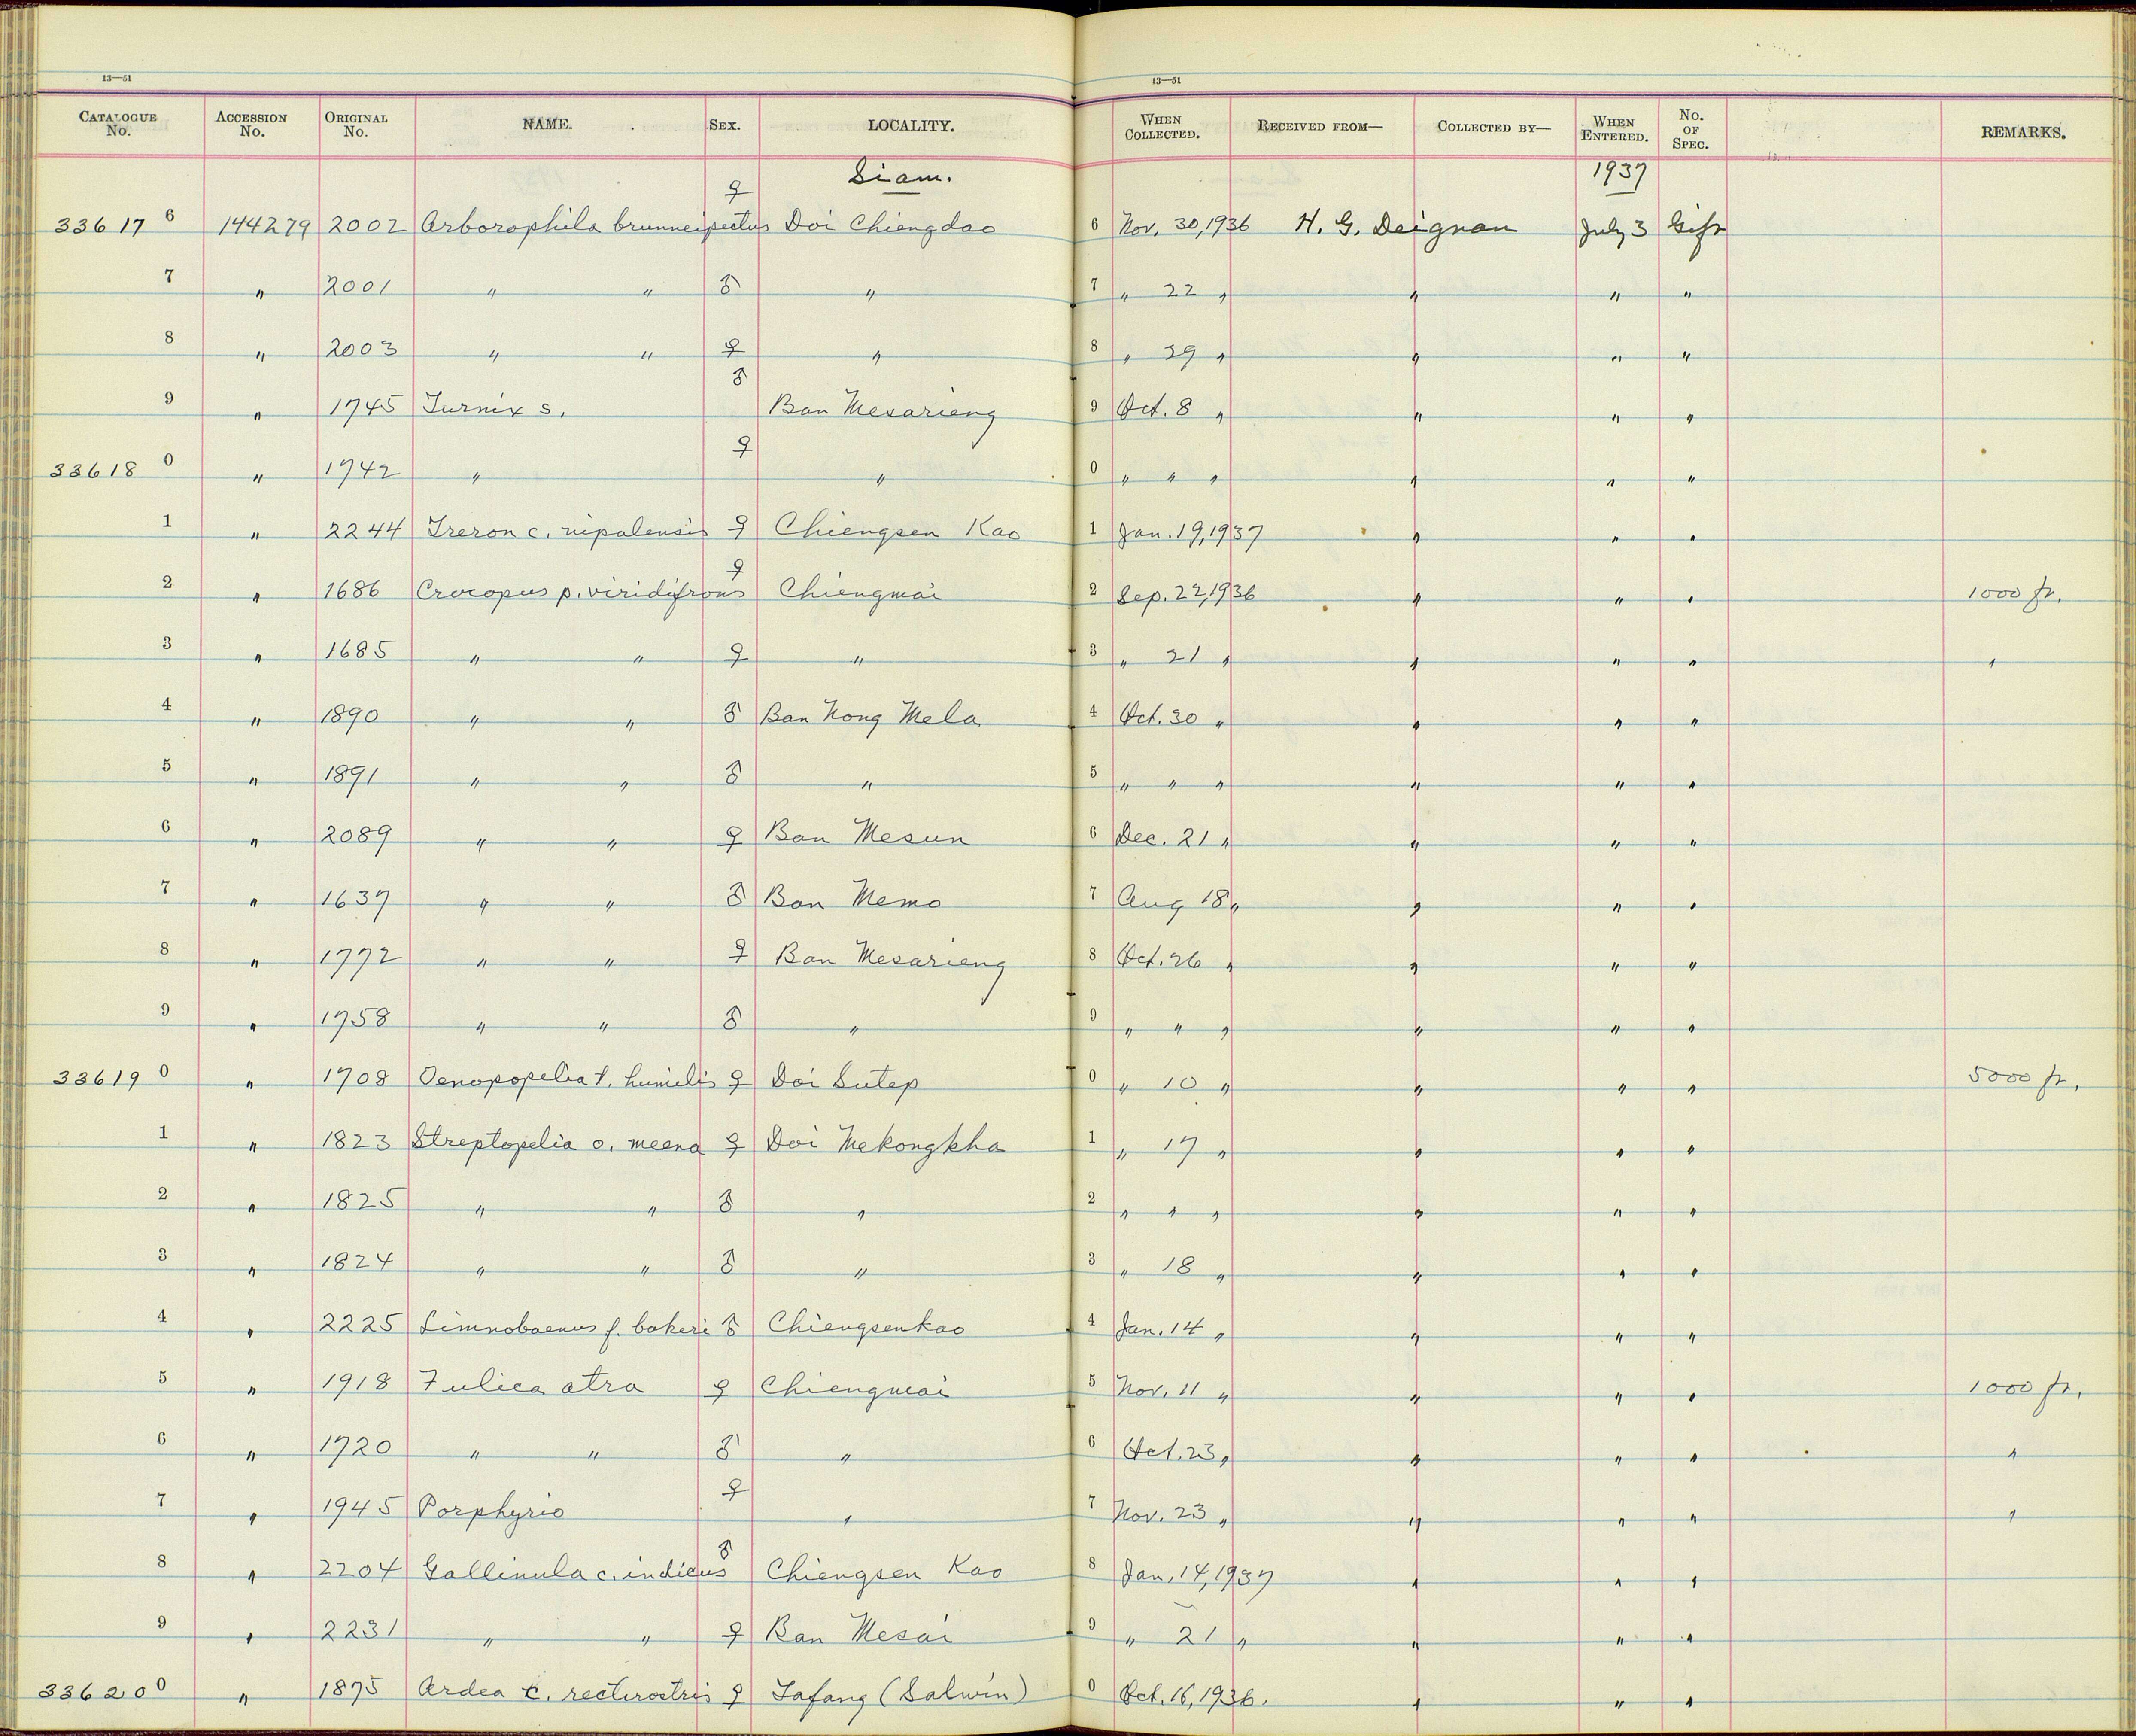 13—51 13—51
CATALOGUE No. ACCESSION No. ORIGINAL No. NAME. SEX. LOCALITY. WHEN COLLECTED. RECEIVED FROM— COLLECTED BY— WHEN ENTERED. No. OF SPEC. REMARKS.
Siam. 1937
33617 6 144279 2002 Arborophila brunneipectus ♀ Doi Chiengdao 6 Nov. 30, 1936 H. G. Deignan July 3 Gift
7 " 2001 " " ♂ " 7 " 22 " " " "
8 " 2003 " " ♀ " 8 " 29 " " " "
9 " 1745 Turnix s. ♂ Ban Mesarieng 9 Oct. 8 " " " "
33618 0 " 1742 " ♀ " 0 " " " " " "
1 " 2244 Treron c. nipalensis ♀ Chiengsen Kao 1 Jan. 19, 1937 " " "
2 " 1686 Crocopus p. viridifrons ♀ Chiengmai 2 Sep. 22, 1936 " " " 1000 ft.
3 " 1685 " " ♀ " 3 " 21 " " " " "
4 " 1890 " " ♂ Ban Nong Mela 4 Oct. 30 " " " "
5 " 1891 " " ♂ " 5 " " " " " "
6 " 2089 " " ♀ Ban Mesun 6 Dec. 21 " " " "
7 " 1637 " " ♂ Ban Memo 7 Aug 18 " " " "
8 " 1772 " " ♀ Ban Mesarieng 8 Oct. 26 " " " "
9 " 1758 " " ♂ " 9 " " " " " "
33619 0 " 1708 Oenopopelia t. humilis ♀ Doi Sutep 0 " 10 " " " " 5000 ft.
1 " 1823 Streptopelia o. meena ♀ Doi Mekongkha 1 " 17 " " " "
2 " 1825 " " ♂ " 2 " " " " " "
3 " 1824 " " ♂ " 3 " 18 " " " "
4 " 2225 Limnobaenus f. bakeri ♂ Chiengsenkao 4 Jan. 14 " " " "
5 " 1918 Fulica atra ♀ Chiengmai 5 Nov. 11 " " " " 1000 ft.
6 " 1720 " " ♂ " 6 Oct. 23 " " " " "
7 " 1945 Porphyrio ♀ " 7 Nov. 23 " " " " "
8 " 2204 Gallinula c. indicus ♂ Chiengsen Kao 8 Jan. 14, 1937 " " "
9 " 2231 " " ♀ Ban Mesai 9 " 21 " " " "
33620 0 " 1875 Ardea c. rectirostris ♀ Tafang (Salwin) 0 Oct. 16, 1936. " " "